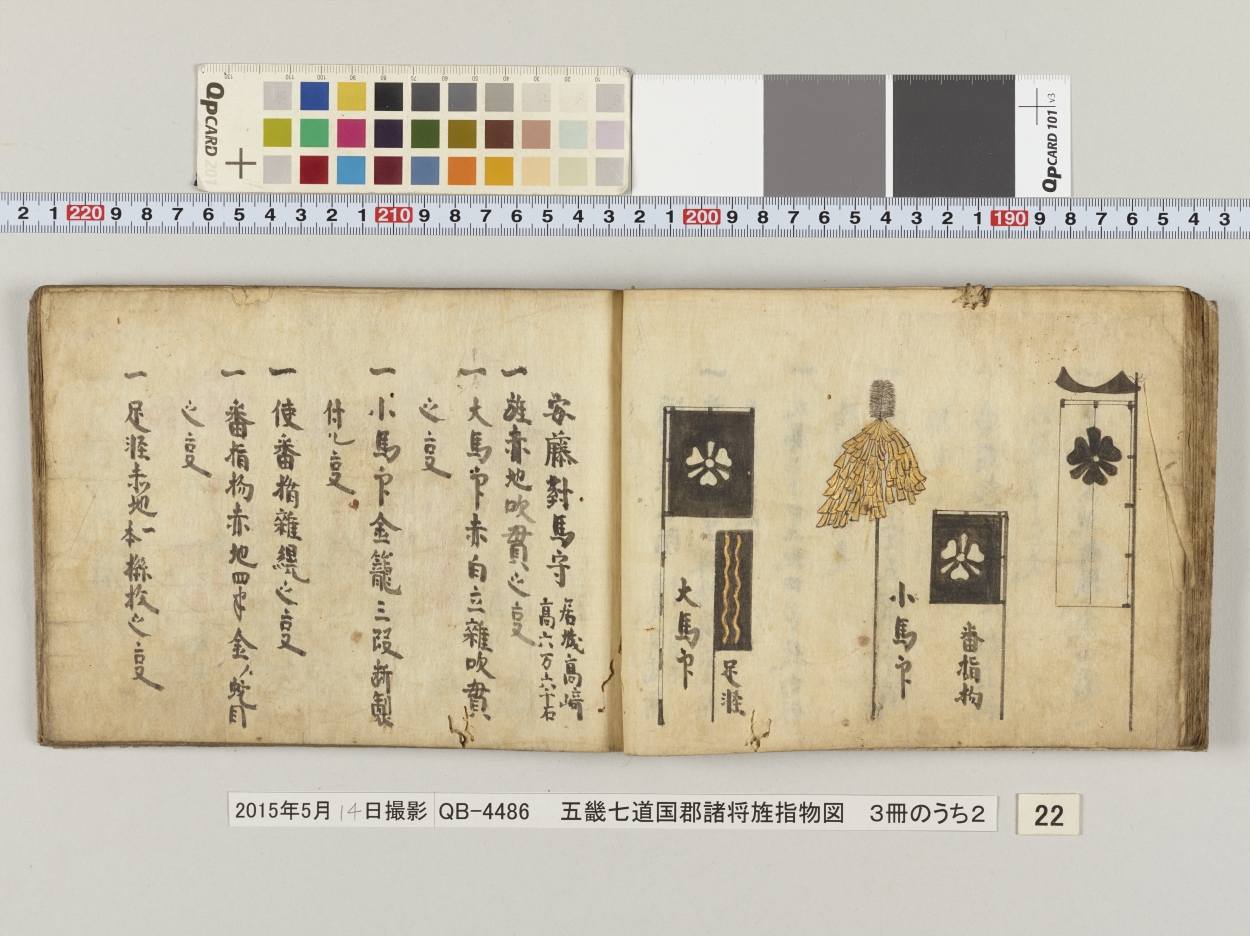 QPCARD 201
QPCARD 101 v3
2 1 220 9 8 7 6 5 4 3 2 1 210 9 8 7 6 5 4 3 2 1 200 9 8 7 6 5 4 3 2 1 190 9 8 7 6 5 4 3
番指物
小馬印
足軽
大馬印
安藤對馬守 居城高崎
高六万六千石
一 旌赤地吹貫之事
一 大馬印赤白立雑吹貫
之事
一 小馬印金籠三段断製
付之事
一 使番指雑縨之事
一 番指物赤地四半金ノ蛇目
之事
一 足軽赤地一本撓之事
2015年5月14日撮影 QB-4486 五畿七道国郡諸将旌指物図 3冊のうち2
22